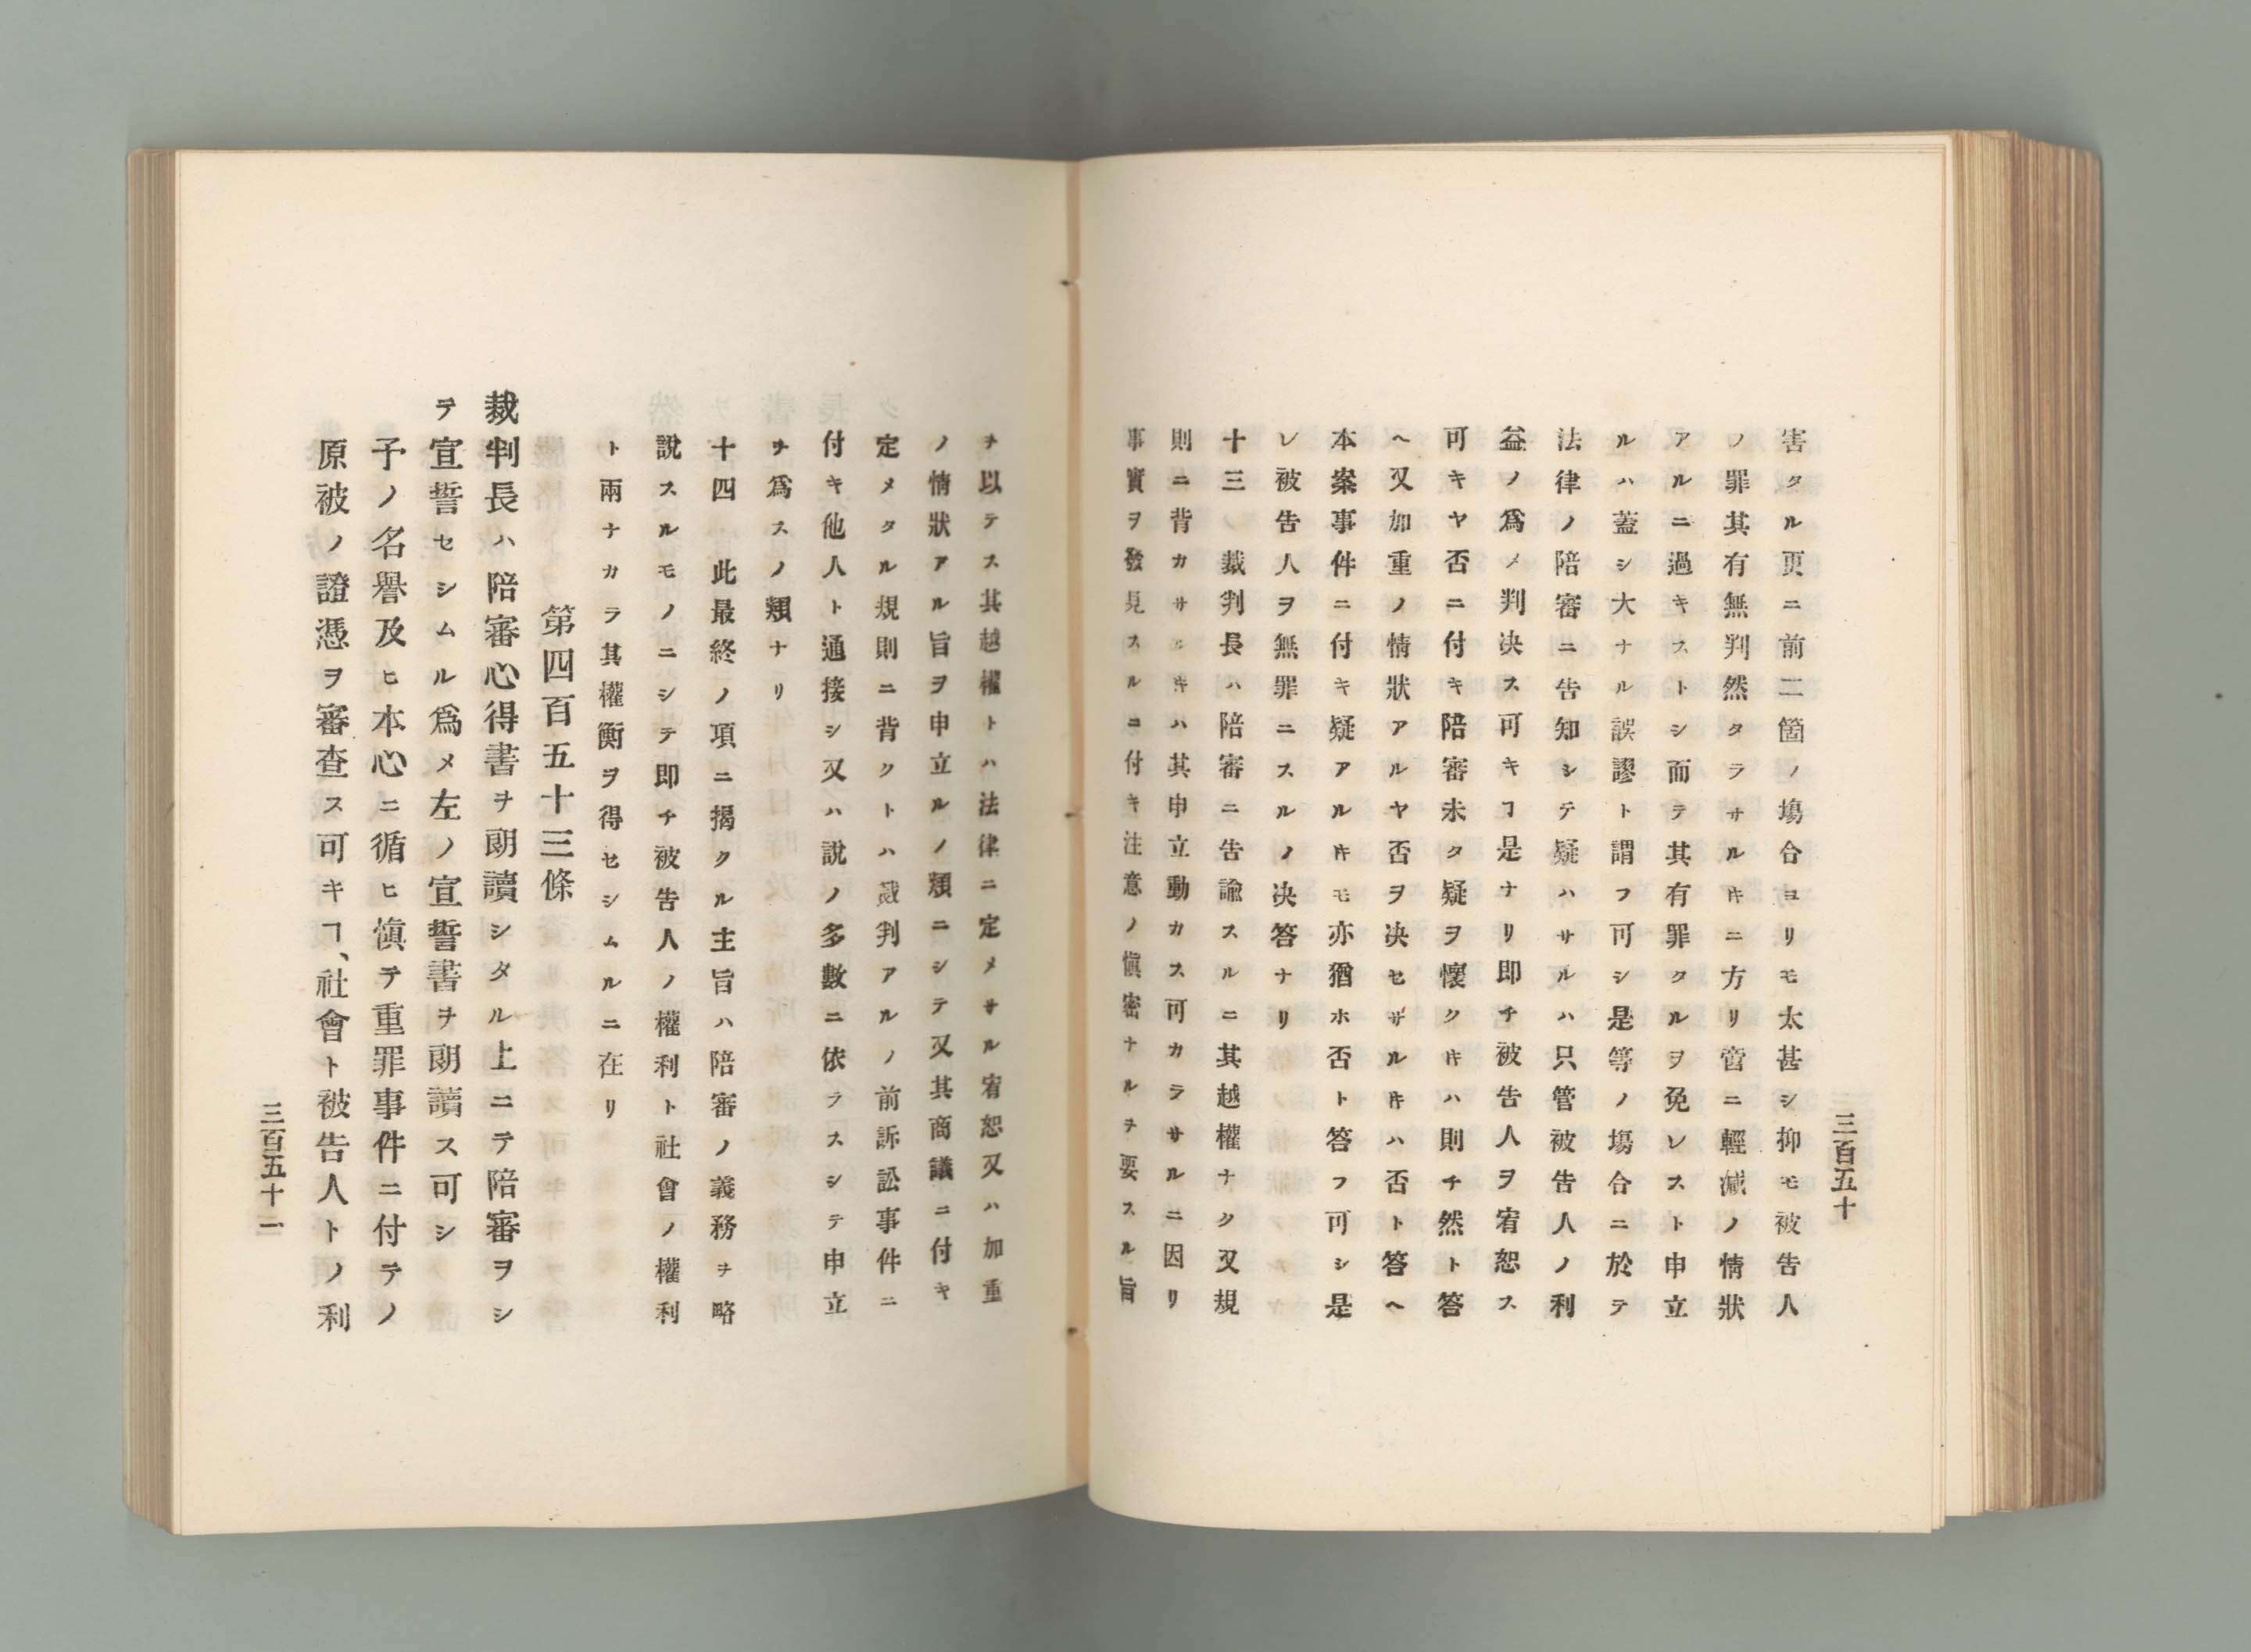 三百五十
害タル更ニ前二箇ノ塲合ヨリモ太甚シ抑モ被告人
ノ罪其有無判然タラサルキニ方リ啻ニ輕減ノ情狀
アルニ過キストシ而テ其有罪タルヲ免レスト申立
ルハ蓋シ大ナル誤謬ト謂フ可シ是等ノ塲合ニ於テ
法律ノ陪審ニ告知シテ疑ハサルハ只管被告人ノ利
益ノ爲メ判决ス可キヿ是ナリ即チ被告人ヲ宥恕ス
可キヤ否ニ付キ陪審未タ疑ヲ懷クキハ則チ然ト答
ヘ又加重ノ情狀アルヤ否ヲ决セサルキハ否ト答ヘ
本案事件ニ付キ疑アルキモ亦猶ホ否ト答フ可シ是
レ被告人ヲ無罪ニスルノ决答ナリ
十三 裁判長ハ陪審ニ告諭スルニ其越權ナク又規
則ニ背カサルキハ其申立動カス可カラサルニ因リ
事實ヲ發見スルニ付キ注意ノ愼密ナルヲ要スル旨
ヲ以テス其越權トハ法律ニ定メサル宥恕又ハ加重
ノ情狀アル旨ヲ申立ルノ類ニシテ又其商議ニ付キ
定メタル規則ニ背クトハ裁判アルノ前訴訟事件ニ
付キ他人ト通接シ又ハ說ノ多數ニ依ラスシテ申立
ヲ爲スノ類ナリ
十四 此最終ノ項ニ揭クル主旨ハ陪審ノ義務ヲ略
說スルモノニシテ即チ被告人ノ權利ト社會ノ權利
ト兩ナカラ其權衡ヲ得セシムルニ在リ
第四百五十三條
裁判長ハ陪審心得書ヲ朗讀シタル上ニテ陪審ヲシ
テ宣誓セシムル爲メ左ノ宣誓書ヲ朗讀ス可シ
子ノ名譽及ヒ本心ニ循ヒ愼テ重罪事件ニ付テノ
原被ノ證憑ヲ審査ス可キヿ、社會ト被告人トノ利
三百五十一